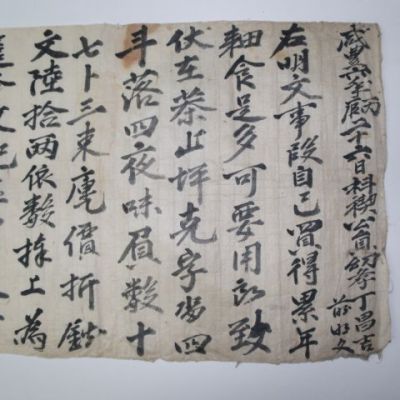 咸豊年二十六日丁昌吉
前明文
右明文事段自己買得累年
耕食是多可要用所致
伏在茶山坪克字畓四
斗落四夜味負數十
七卜三束庫價折錢
文陸拾兩依數捧上為
文記